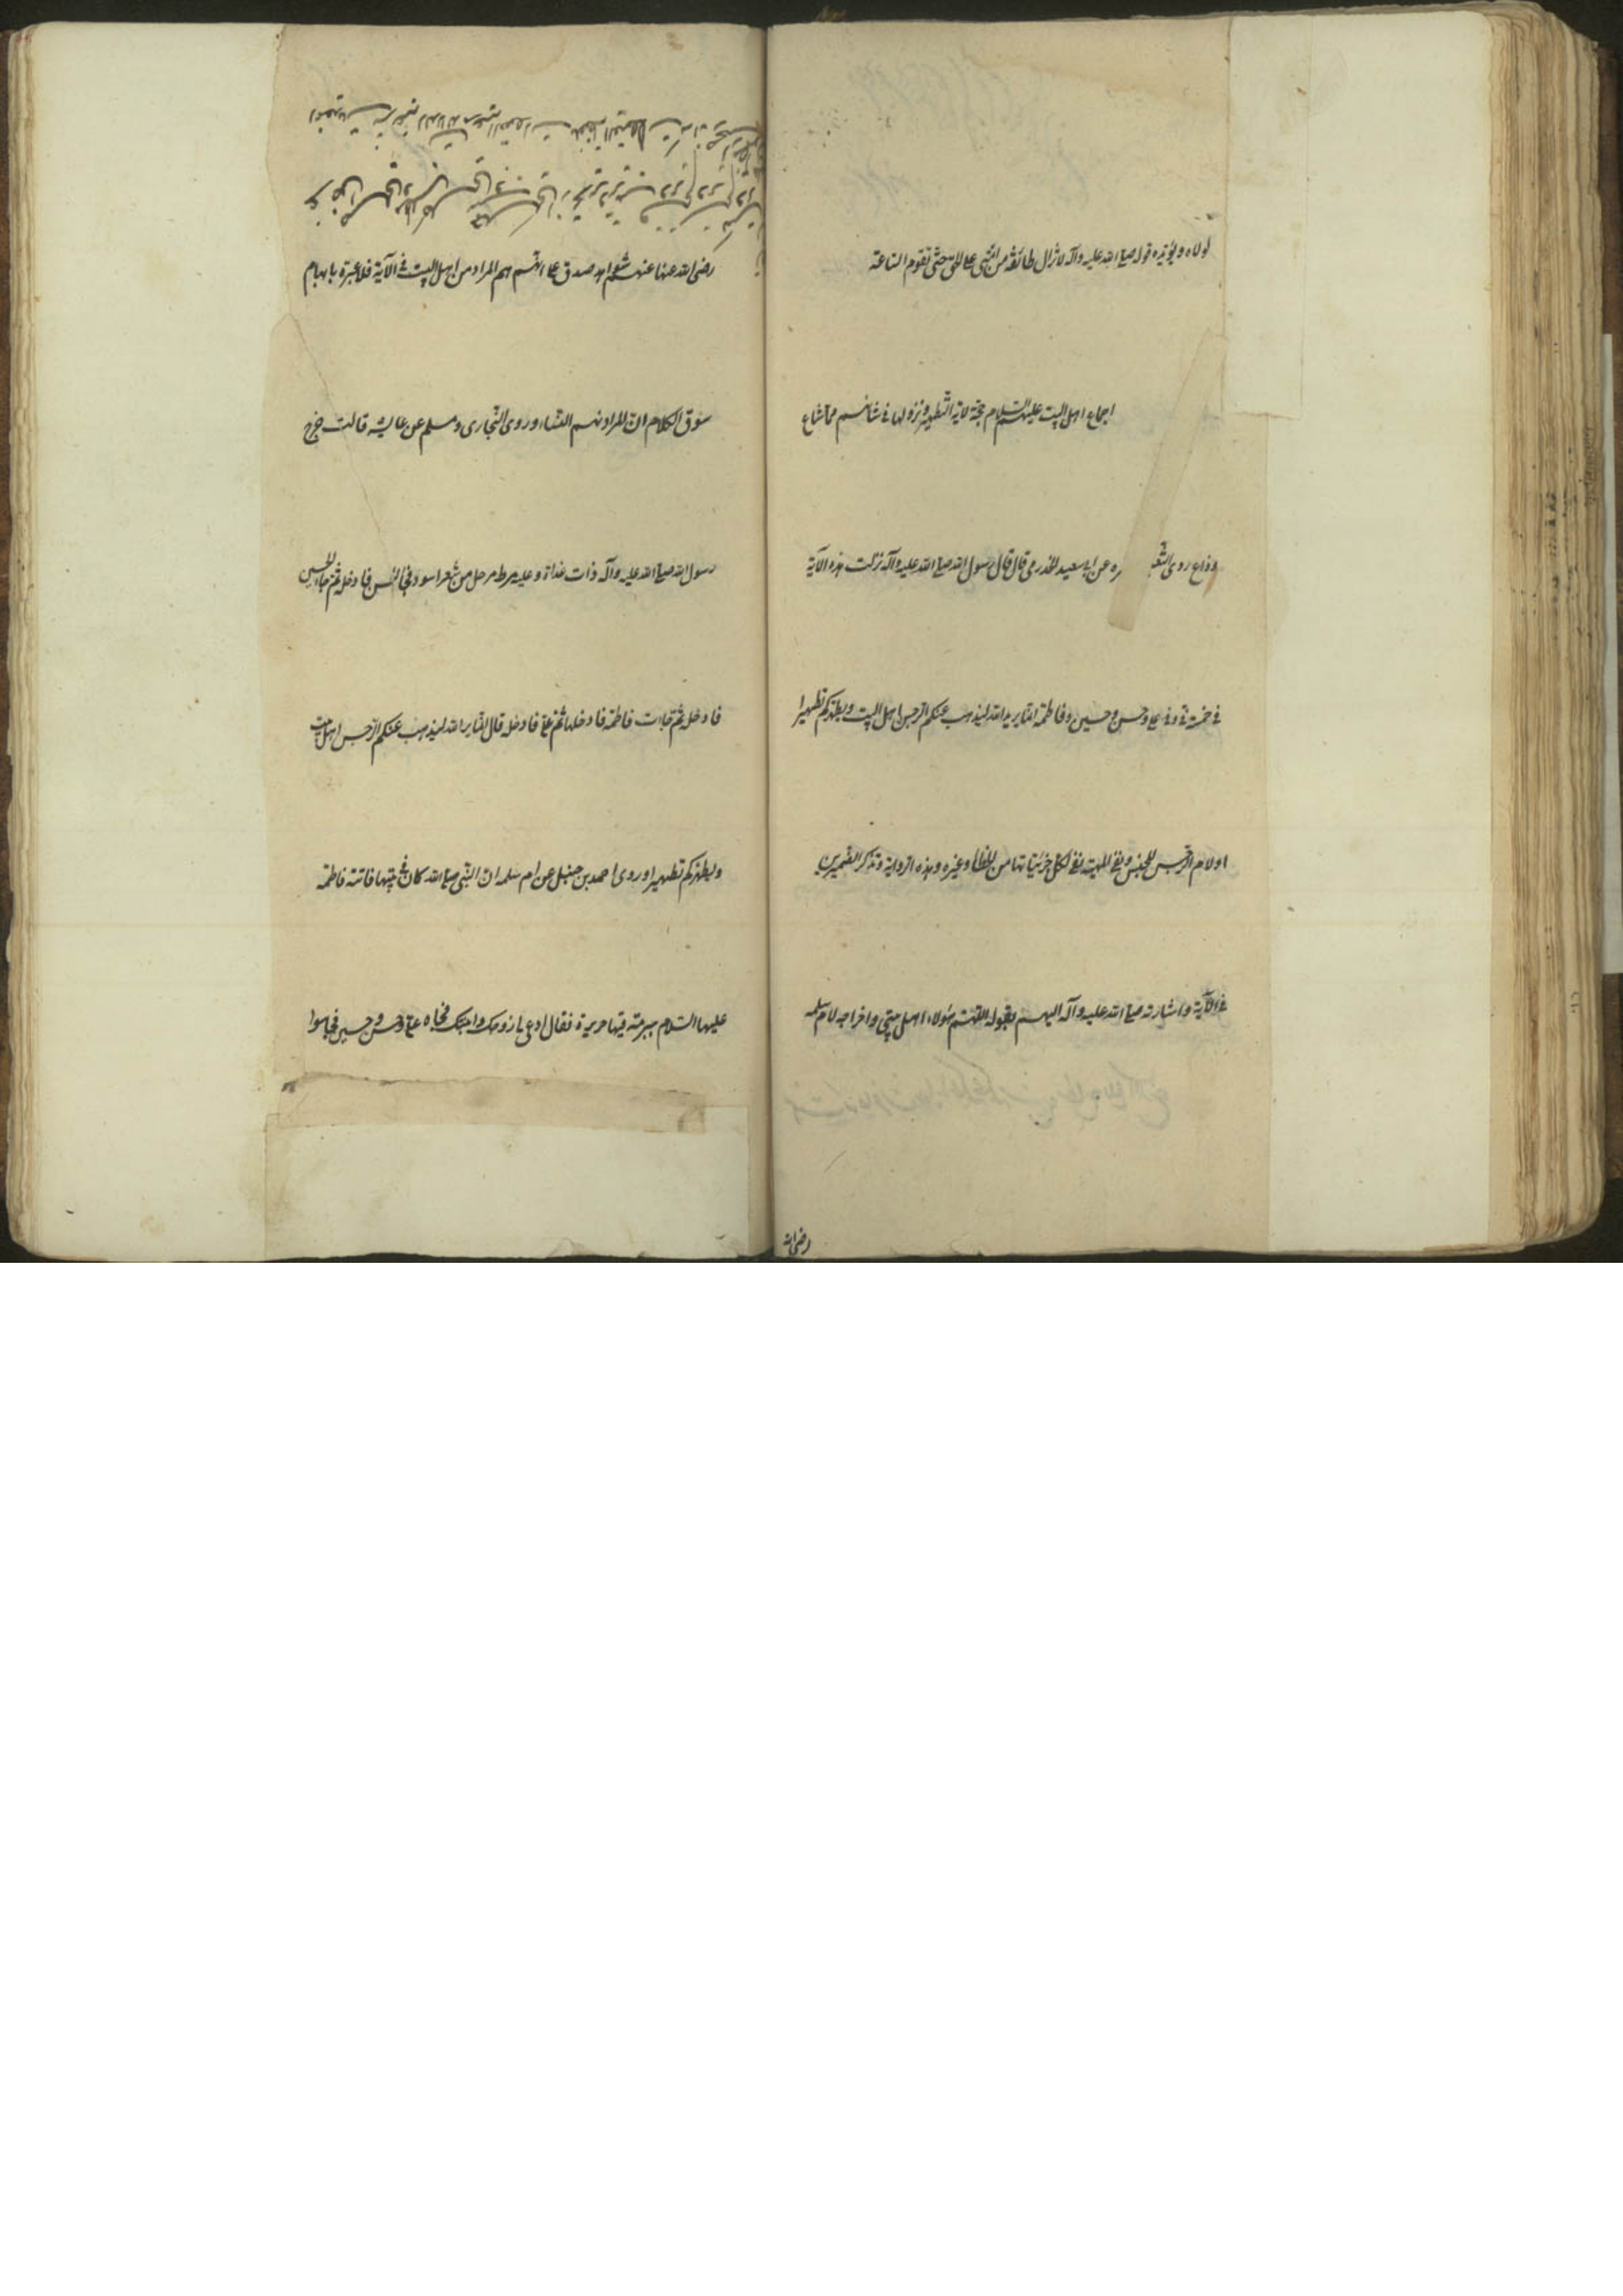 لولاه ويؤيده قوله صلى الله عليه وآله لا تزال طائفة من امتي على الحق حتى تقوم الساعة
اجماع اهل البيت عليهم السلام حجة لآية التطهير ونزولها في شانهم مما شاع
وذاع روى الثعـ ره عن ابي سعيد الخدري قال قال رسول الله صلى الله عليه وآله نزلت هذه الآية
في خمسة في وفي علي وحسن وحسين وفاطمة انما يريد الله ليذهب عنكم الرجس اهل البيت ويطهركم تطهيرا
اولام الرجس للجنس ونفي المهية نفي لكل جزئياتها من الخطأ وغيره وهذه الرواية وتذكير الضميرين
في الآية واشارته صلى الله عليه وآله اليهم بقوله اللهم هؤلاء اهل بيتي واخراجه لام سلمه
رضى الله
رضى الله عنها عنهم شواهد صدق على انهم هم المراد من اهل البيت في الآية فلا عبرة بايهام
سوق الكلام ان المراد بهم النساء وروى البخاري ومسلم عن عايشه قالت خرج
رسول الله صلى الله عليه وآله ذات غداة وعليه مرط مرحل من شعر اسود فجاء الحسن فادخله ثم جاء الحسين
فادخله ثم جاءت فاطمة فادخلها ثم علي فادخله قال انما يريد الله ليذهب عنكم الرجس اهل البيت
ويطهركم تطهيرا وروى احمد بن حنبل عن ام سلمه ان النبي صلى الله كان في بيتها فاتته فاطمة
عليها السلام ببرمة فيها حريرة فقال ادعى لي زوجك وابنيك فجاء علي وحسن وحسين فجلسوا